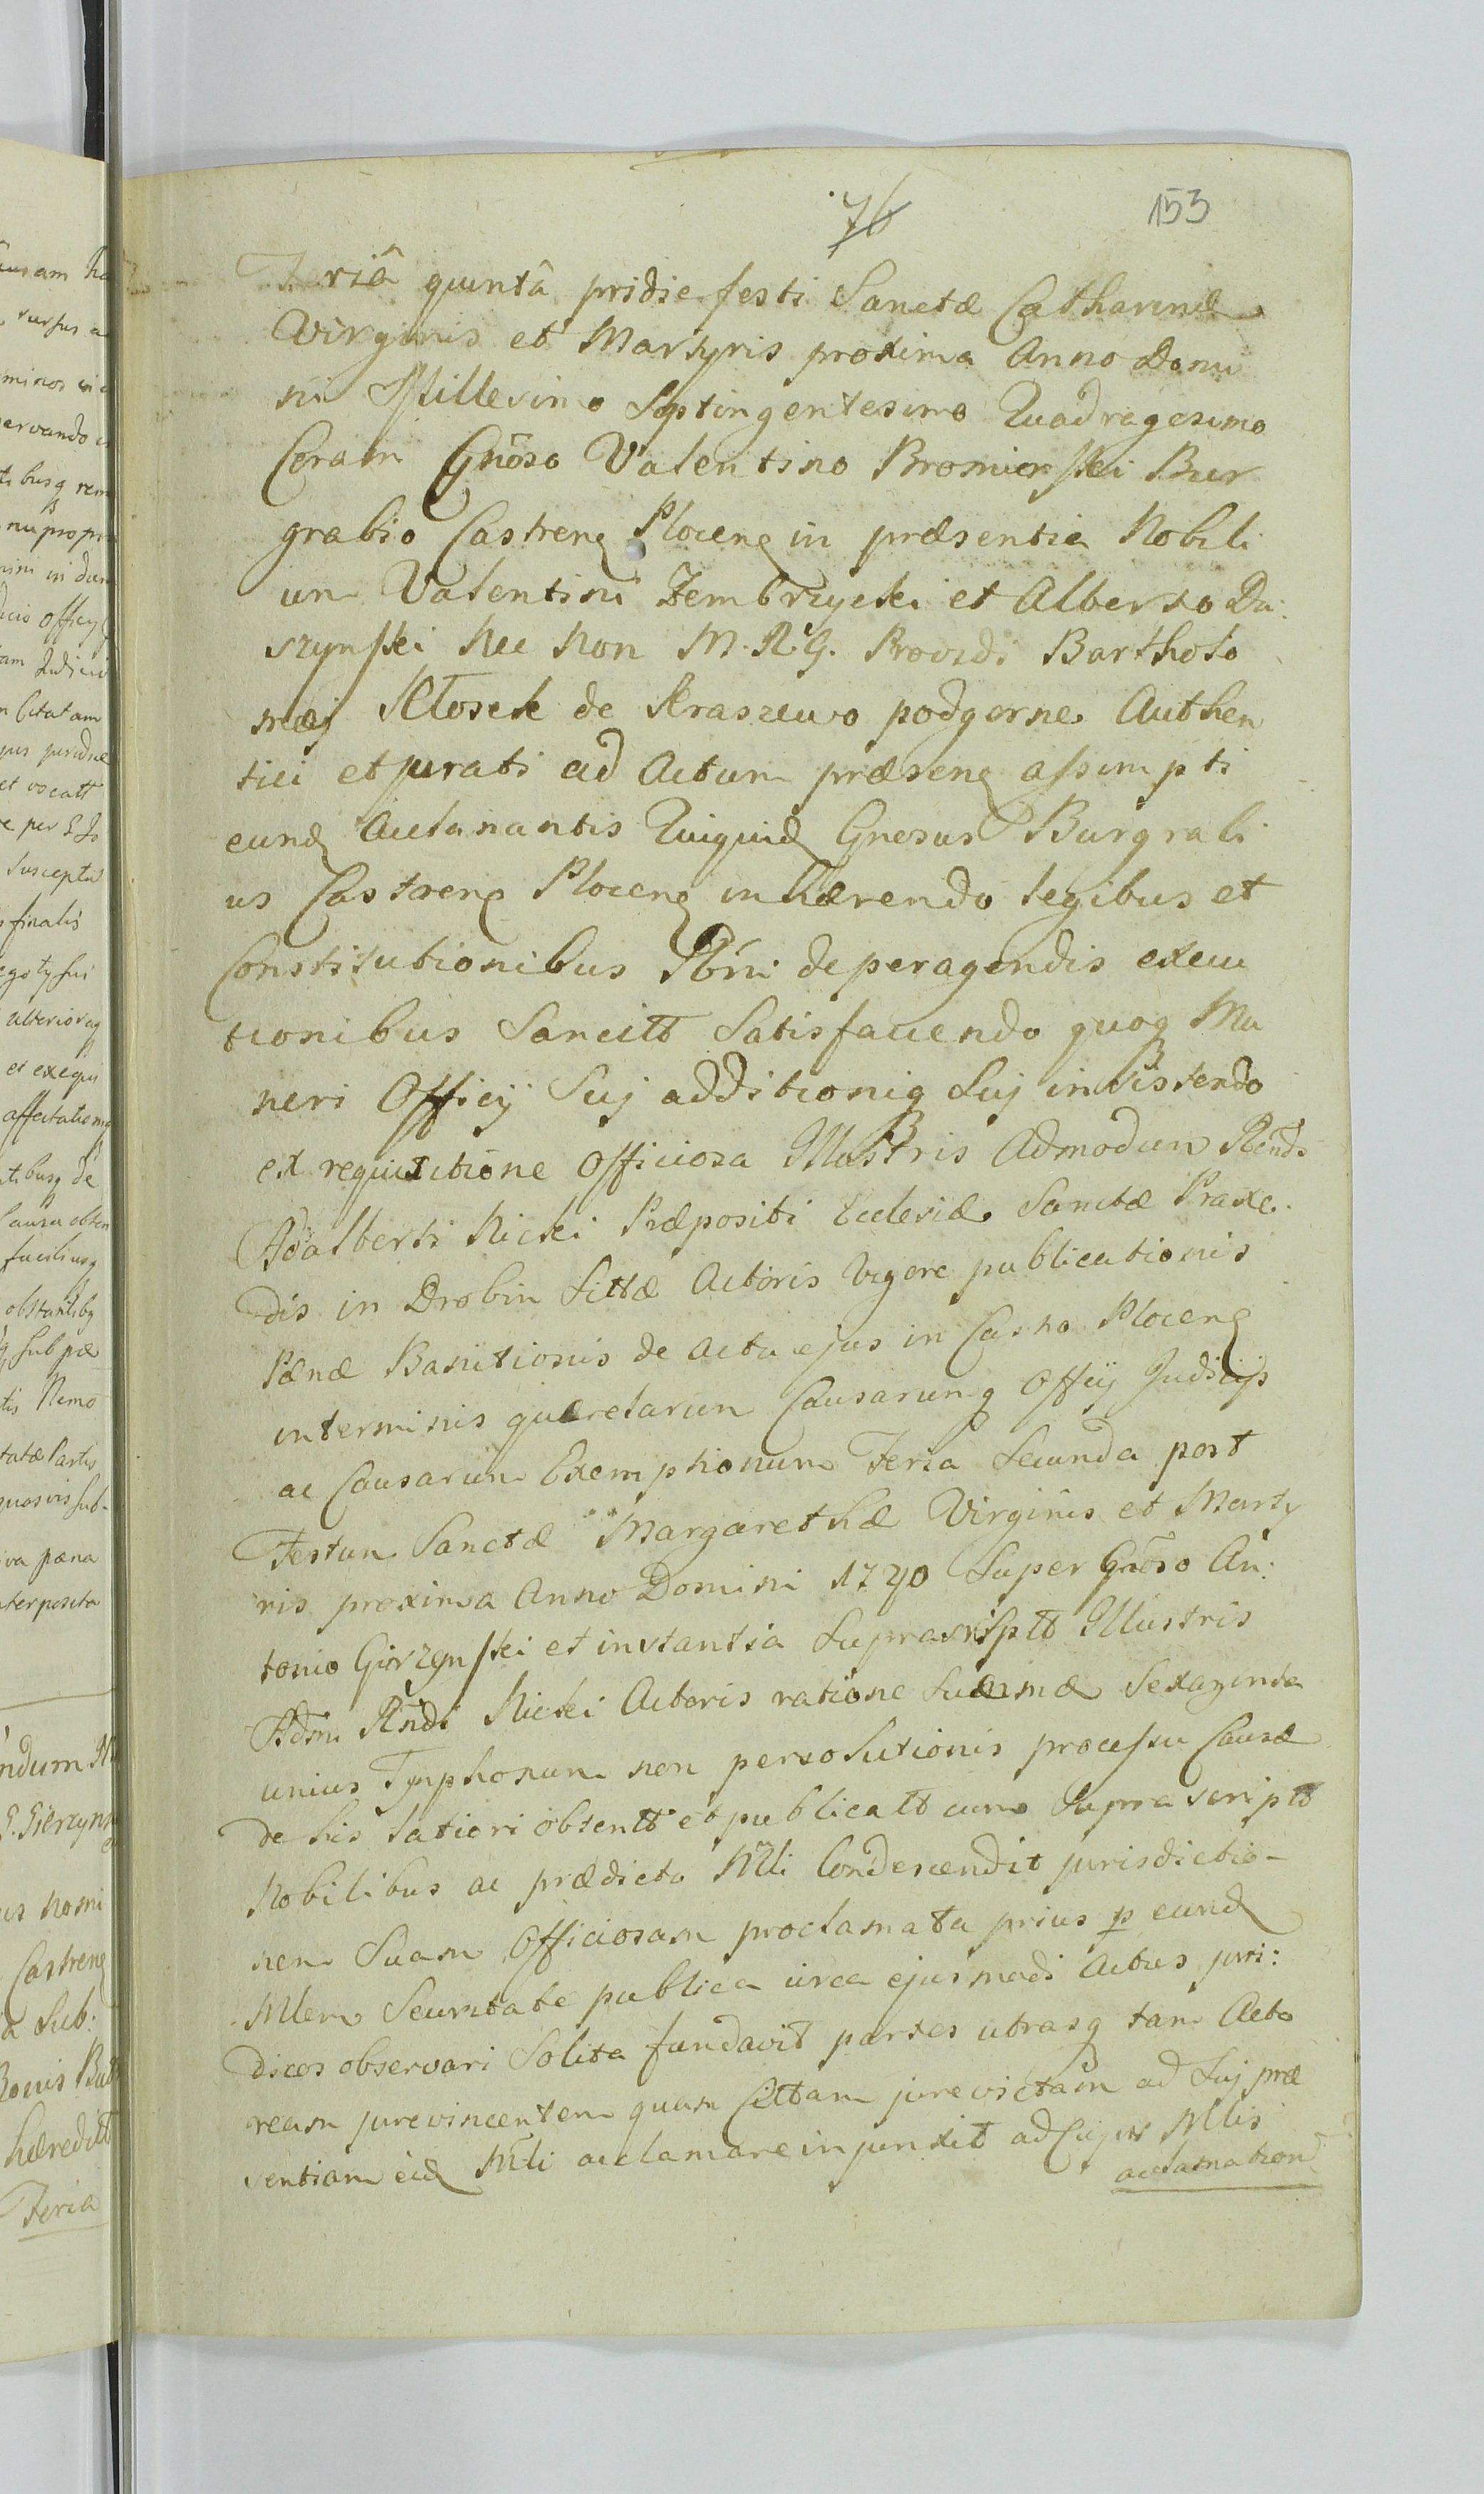 76
153
Feriâ quintâ pridie festi Sanctæ Catharinæ
Virginis et Martyris proxima Anno Domi
ni Millesimo Septingentesimo Quadragesimo
Coram Gnõso Valentino Bromierski Bur
grabio Castrenq Plocenq in præsentia Nobili
um Valentini Zembrzycki et Alberto Du:
szynski Nec Non M. R. G. Providi Bartholo
mæj Kłosek de Kraszewo podgorne Authen
tici et jurati ad Actum præsenq assumpti
eundq Aclamantis Quiquidq Gnosus Burgrabi
us Castrenq Plocenq inhærendo legibus et
Constitutionibus Regni de peragendis execu
tionibus Sancitt Satisfaciendo quoq Mu
neri Officij Suj additioniq Suj insistendo
ex requisitione Officiosa Illustris Admodum Rendi
Adalberti Nicki Præpositi Ecclesiæ Sanctæ Praxe.
dis in Drobin Sittæ Actoris Vigore publicationis
Pænæ Banitionis de Actu ejus in Castro Plocenq
interminis quærelarum Causarumq Officij Judicijs
ac Causarum Exemptionum Feria Secunda post
Festum Sanctæ Margarethæ Virginis et Marty
ris proxima Anno Domini 1740 Super Gnõso An:
tonio Gierzynski et instantia Suprascriptt Illustris
Adm Rndi Nicki Actoris ratione Summæ Sexaginta
unius Tynphonum non persolutionis processu Causæ
de his latiori obtentt et publicatt cum Suprascriptt
Nobilibus ac prædicto Mli Condescendit jurisdictio-
nem Suam Officiosam proclamata prius p eundq
Mlem Securitate publica circa ejusmodi Actus juri:
dicos observari Solita fundavit partes utrasq tam Acto
ream jurevincentem quam Cittam jurevictam ad Suj præ
sentiam eidq Mli acclamare injunxit ad Cujus Mlis
acclamation